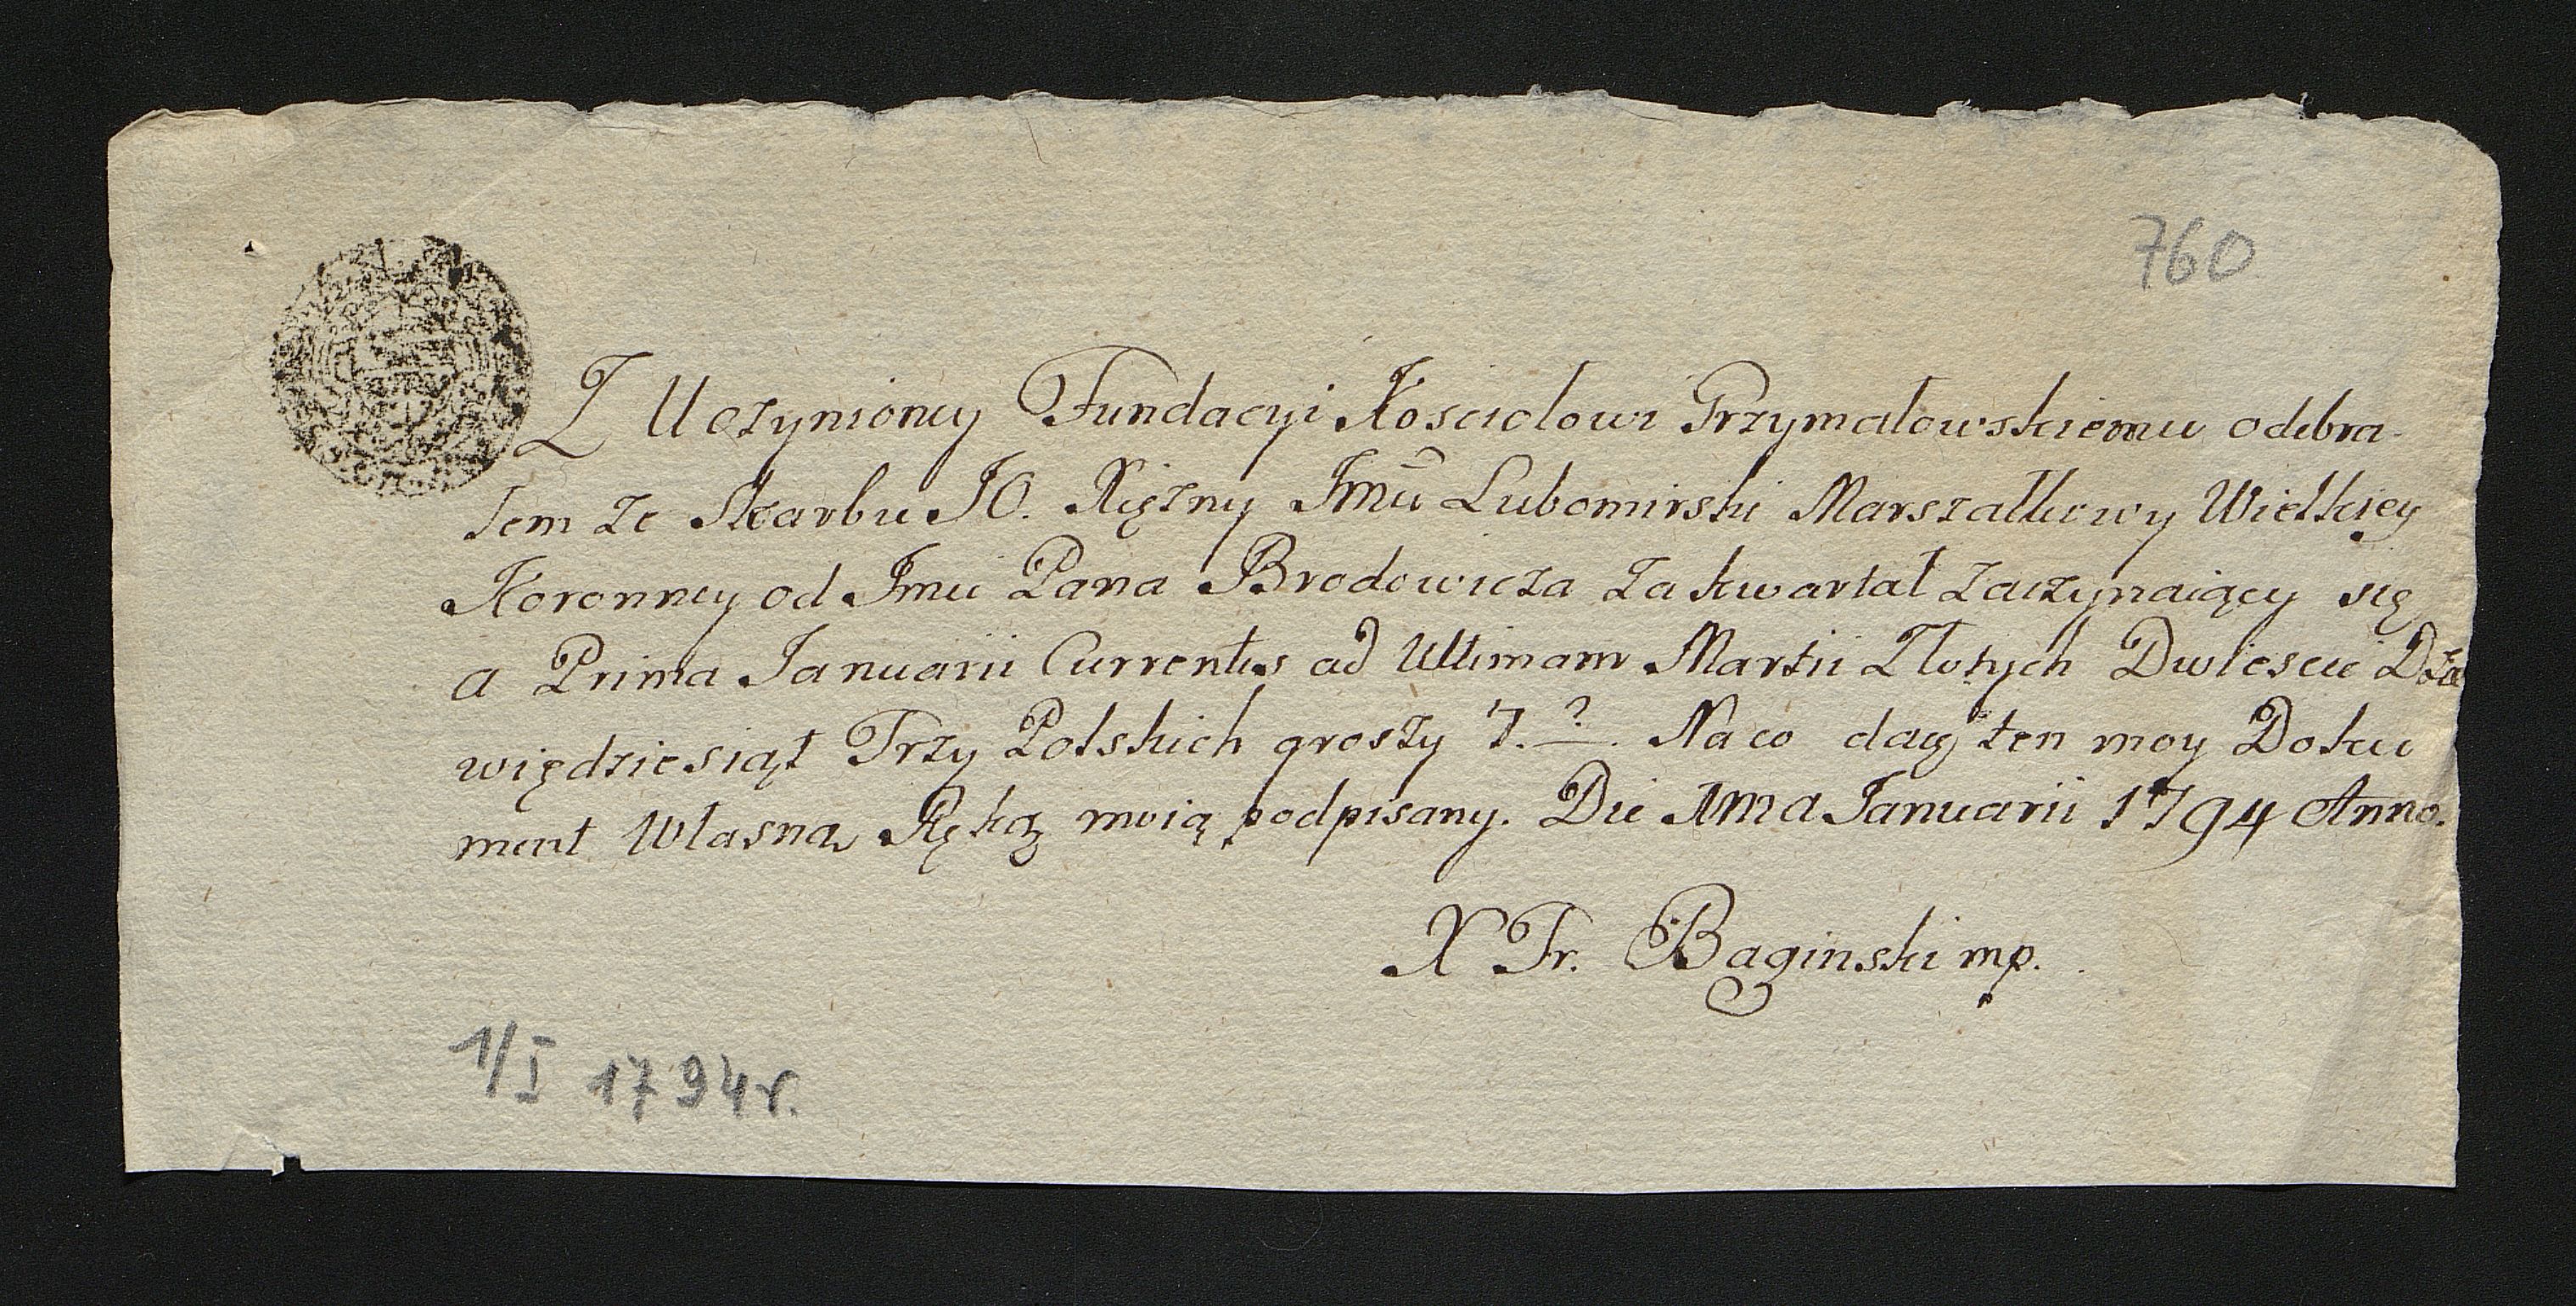 760
Z Uczynioney Fundacyi Kosciolowi Przymałowskiemu odebra-
łem ze Skarbu JO. Xiężny Jmū Lubomirski Marszałkowy Wielkiey
Koronney od Jmu Pana Brodowicza za kwartał zaczynaiący się
a Prima Januarii Currentis ad Ultimam Martii Złotych Dwiescie
więdziesiąt Trzy Polskich groszy 7. ?. Na co daię ten moy Doku
ment Własną Ręką moią podpisany. Die 1ma Januarii 1794 Anno.
X Fr. Baginski mp.
1/I 1794 r.